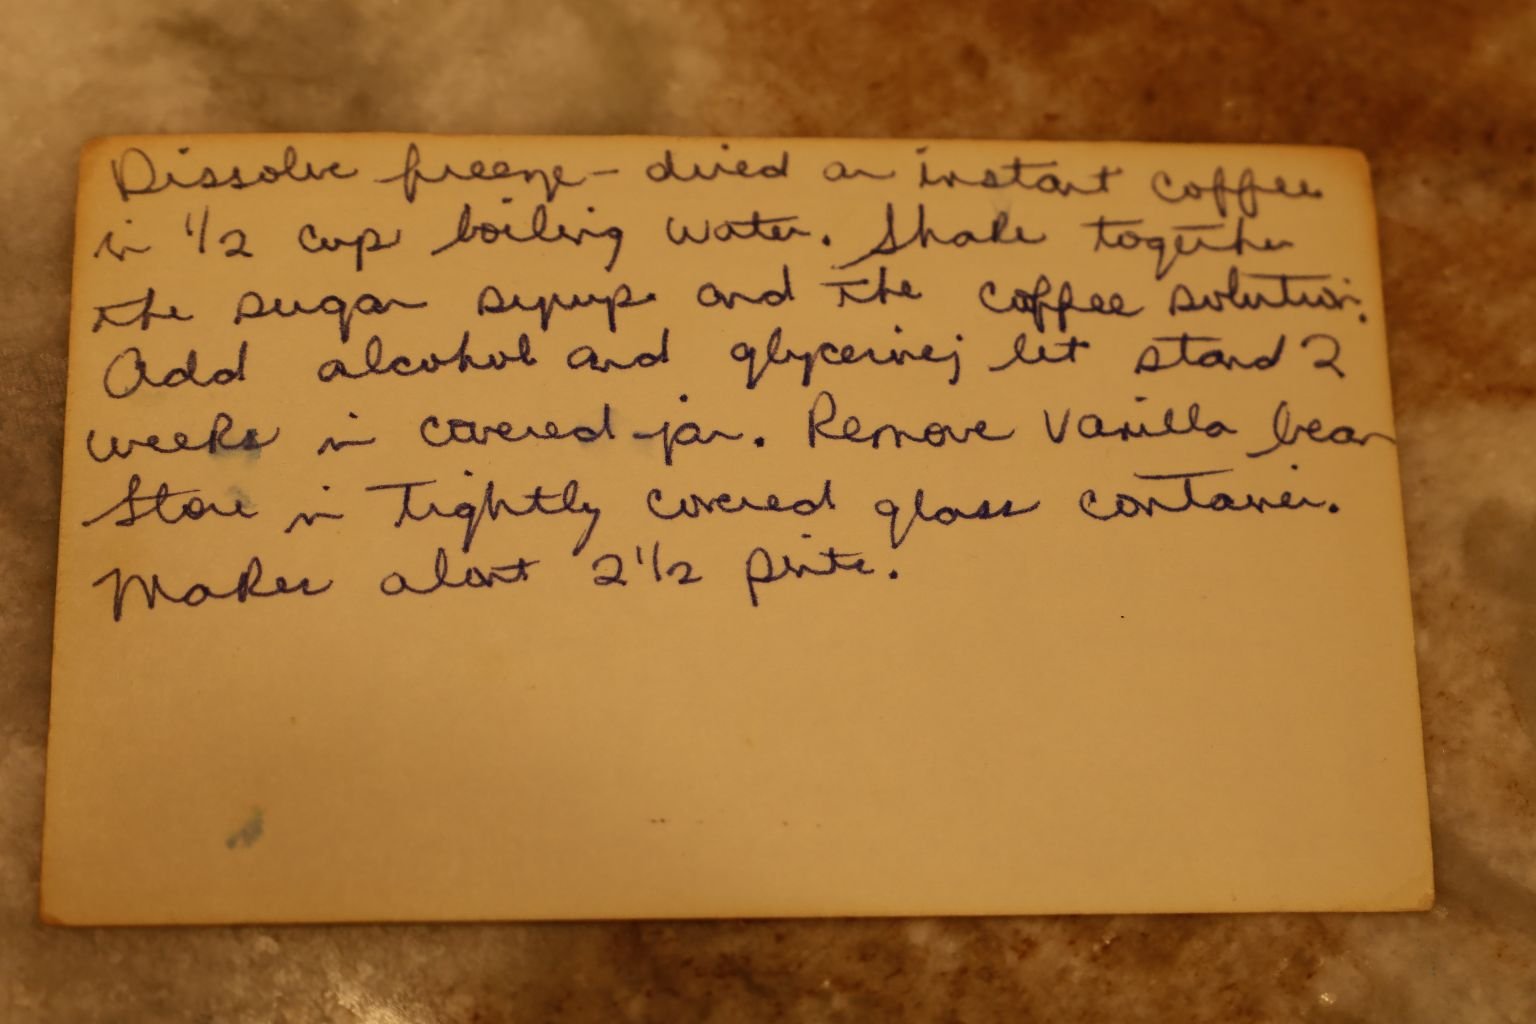 Dissolve freeze-dried or instant coffee
in 1/2 cup boiling water. Shake together
the sugar syrup and the coffee solution.
Add alcohol and glycerine; let stand 2
weeks in covered jar. Remove vanilla bean
Store in tightly covered glass container.
Makes about 2 1/2 pints.